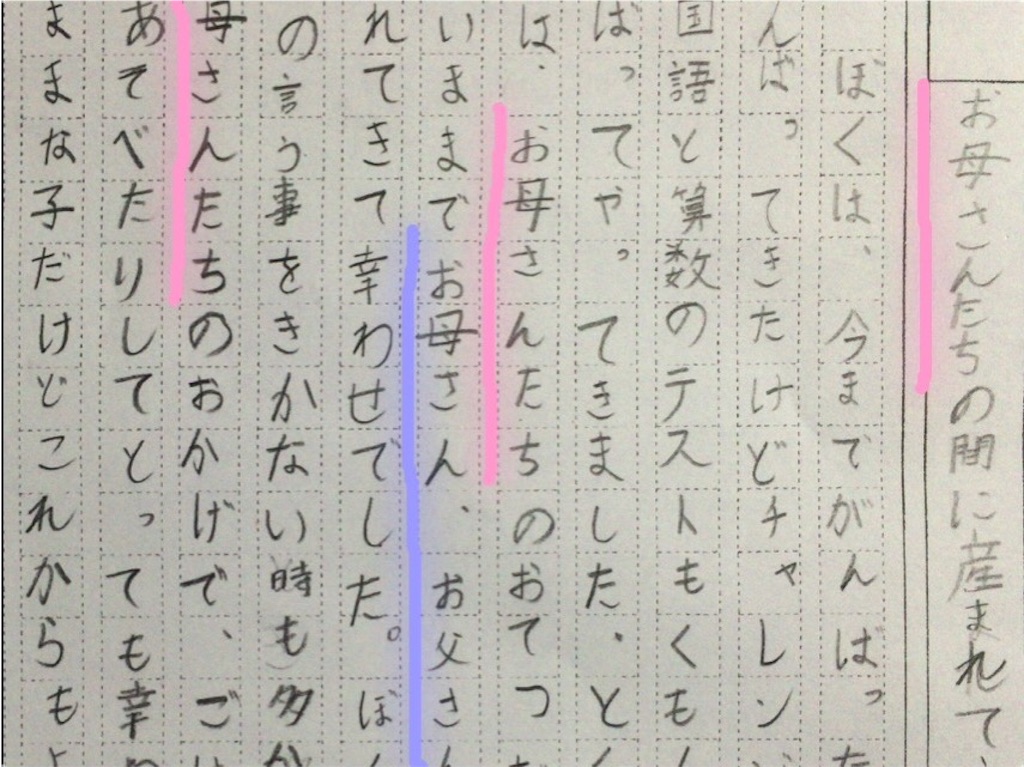 お母さんたちの間に産まれて、
ぼくは、今までがんばっ
んばってきたけどチャレン
国語と算数のテストもくも
ばってやってきました。と
は、お母さんたちのおてつ
いままでお母さん、お父さ
れてきて幸わせでした。ぼ
の言う事をきかない時も多
母さんたちのおかげで、ご
あそべたりしてとっても幸
ままな子だけどこれからも